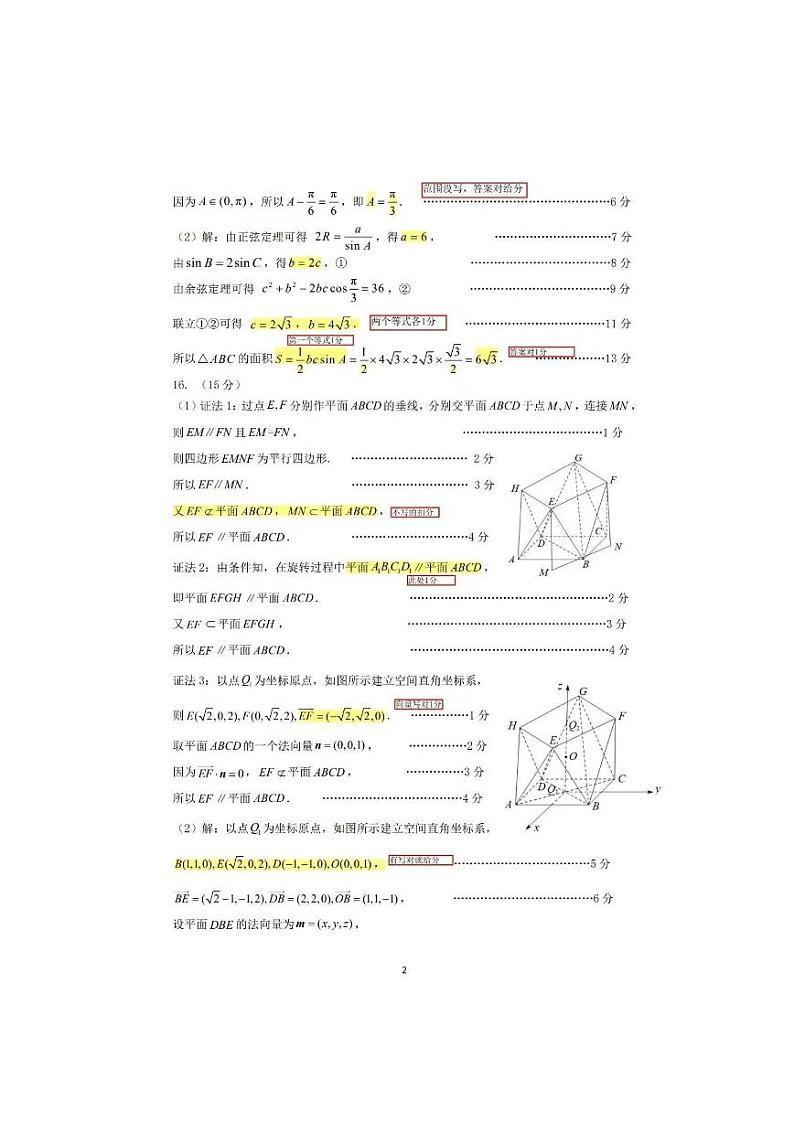 范围没写，答案对给分
因为 A∈(0,π)，所以 A−π/6=π/6，即 A=π/3． ……6 分
（2）解：由正弦定理可得 2R=a/sin A，得 a=6， ……7 分
由 sin B=2sin C，得 b=2c，① ……8 分
由余弦定理可得 c²+b²−2bc cos π/3=36，② ……9 分
联立①②可得 c=2√3，b=4√3． 两个等式各1分 ……11 分
第一个等式1分
所以△ABC 的面积 S=1/2 bc sin A=1/2×4√3×2√3×√3/2=6√3． 答案对1分 ……13 分
16. （15 分）
（1）证法 1：过点 E,F 分别作平面 ABCD 的垂线，分别交平面 ABCD 于点 M,N，连接 MN，
则 EM∥FN 且 EM=FN， ……1 分
则四边形 EMNF 为平行四边形． ……2 分
所以 EF∥MN． ……3 分
又 EF⊄平面 ABCD，MN⊂平面 ABCD， 不写的扣分
所以 EF∥平面 ABCD． ……4 分
G
H
F
E
D
C
A
B
N
M
证法 2：由条件知，在旋转过程中平面 A₁B₁C₁D₁∥平面 ABCD，
此处1分
即平面 EFGH∥平面 ABCD． ……2 分
又 EF⊂平面 EFGH， ……3 分
所以 EF∥平面 ABCD． ……4 分
证法 3：以点 Q₁ 为坐标原点，如图所示建立空间直角坐标系，
向量写对1分
则 E(√2,0,2),F(0,√2,2),EF=(−√2,√2,0)． ……1 分
取平面 ABCD 的一个法向量 n=(0,0,1)， ……2 分
因为 EF·n=0，EF⊄平面 ABCD， ……3 分
所以 EF∥平面 ABCD． ……4 分
z
G
H
Q₂
F
E
O
D
Q₁
C
A
B
y
x
（2）解：以点 Q₁ 为坐标原点，如图所示建立空间直角坐标系，
B(1,1,0),E(√2,0,2),D(−1,−1,0),O(0,0,1)， 有写对就给分 ……5 分
BE=(√2−1,−1,2),DB=(2,2,0),OB=(1,1,−1)， ……6 分
设平面 DBE 的法向量为 m=(x,y,z)，
2